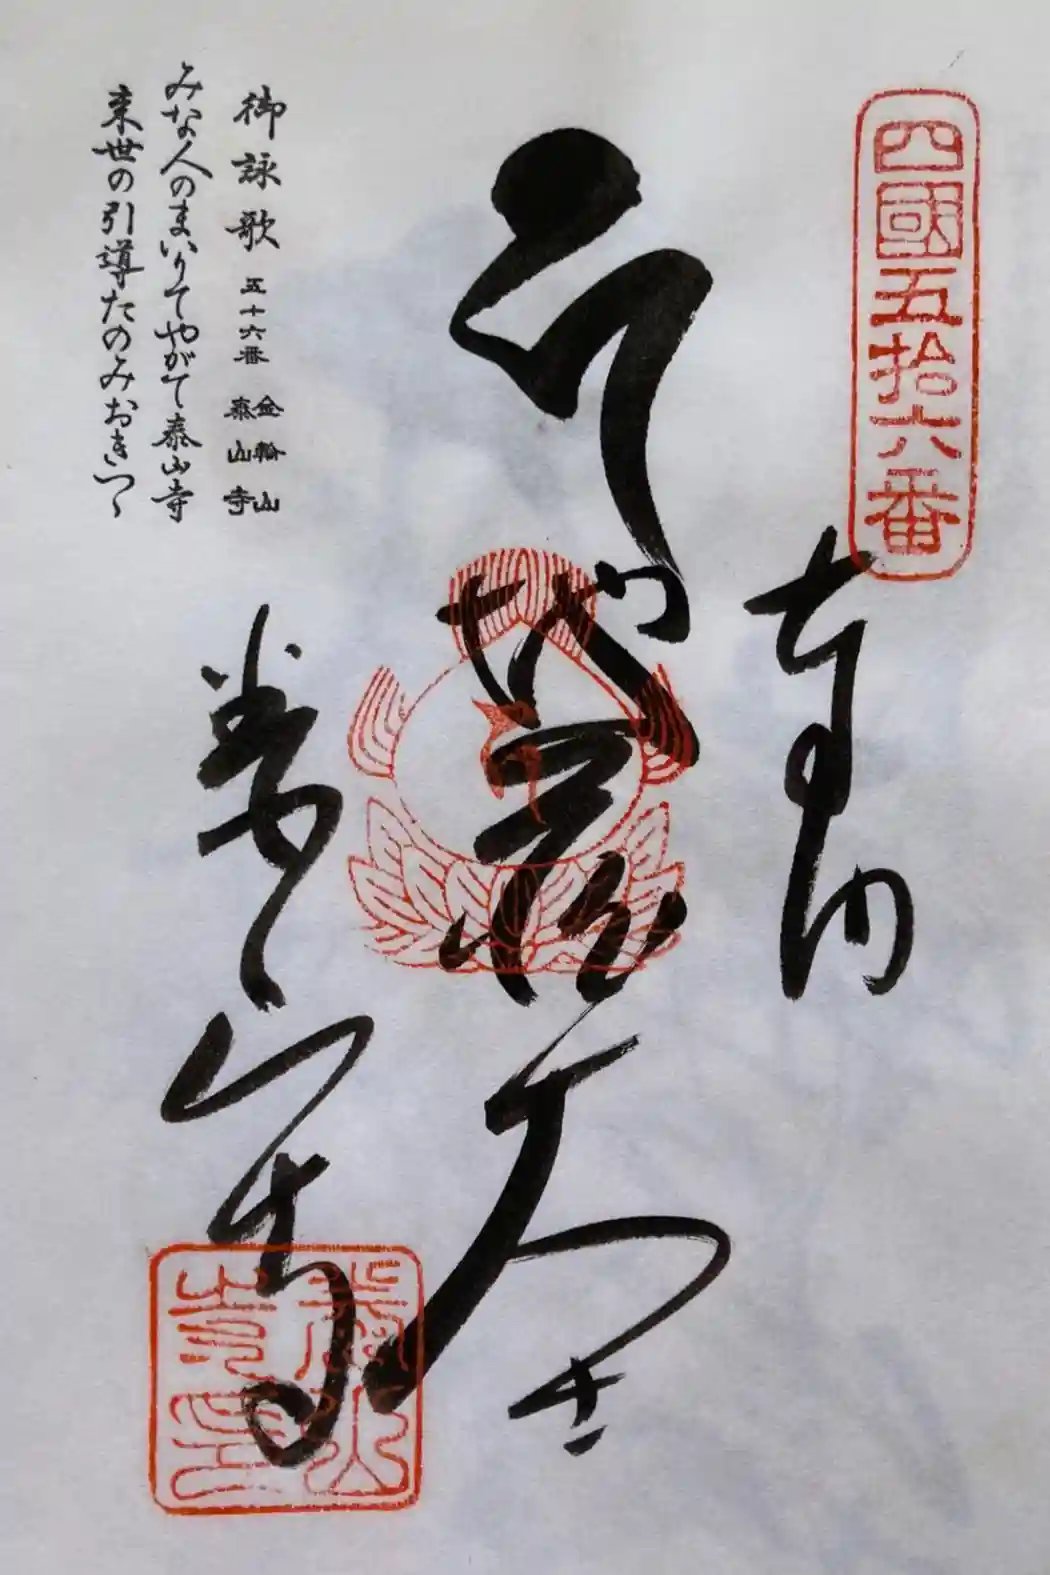 四國五拾六番
奉納
地蔵大士
泰山寺
御詠歌 五十六番 金輪山 泰山寺
みな人のまいりてやがて泰山寺
来世の引導たのみおきつゝ
泰山寺印